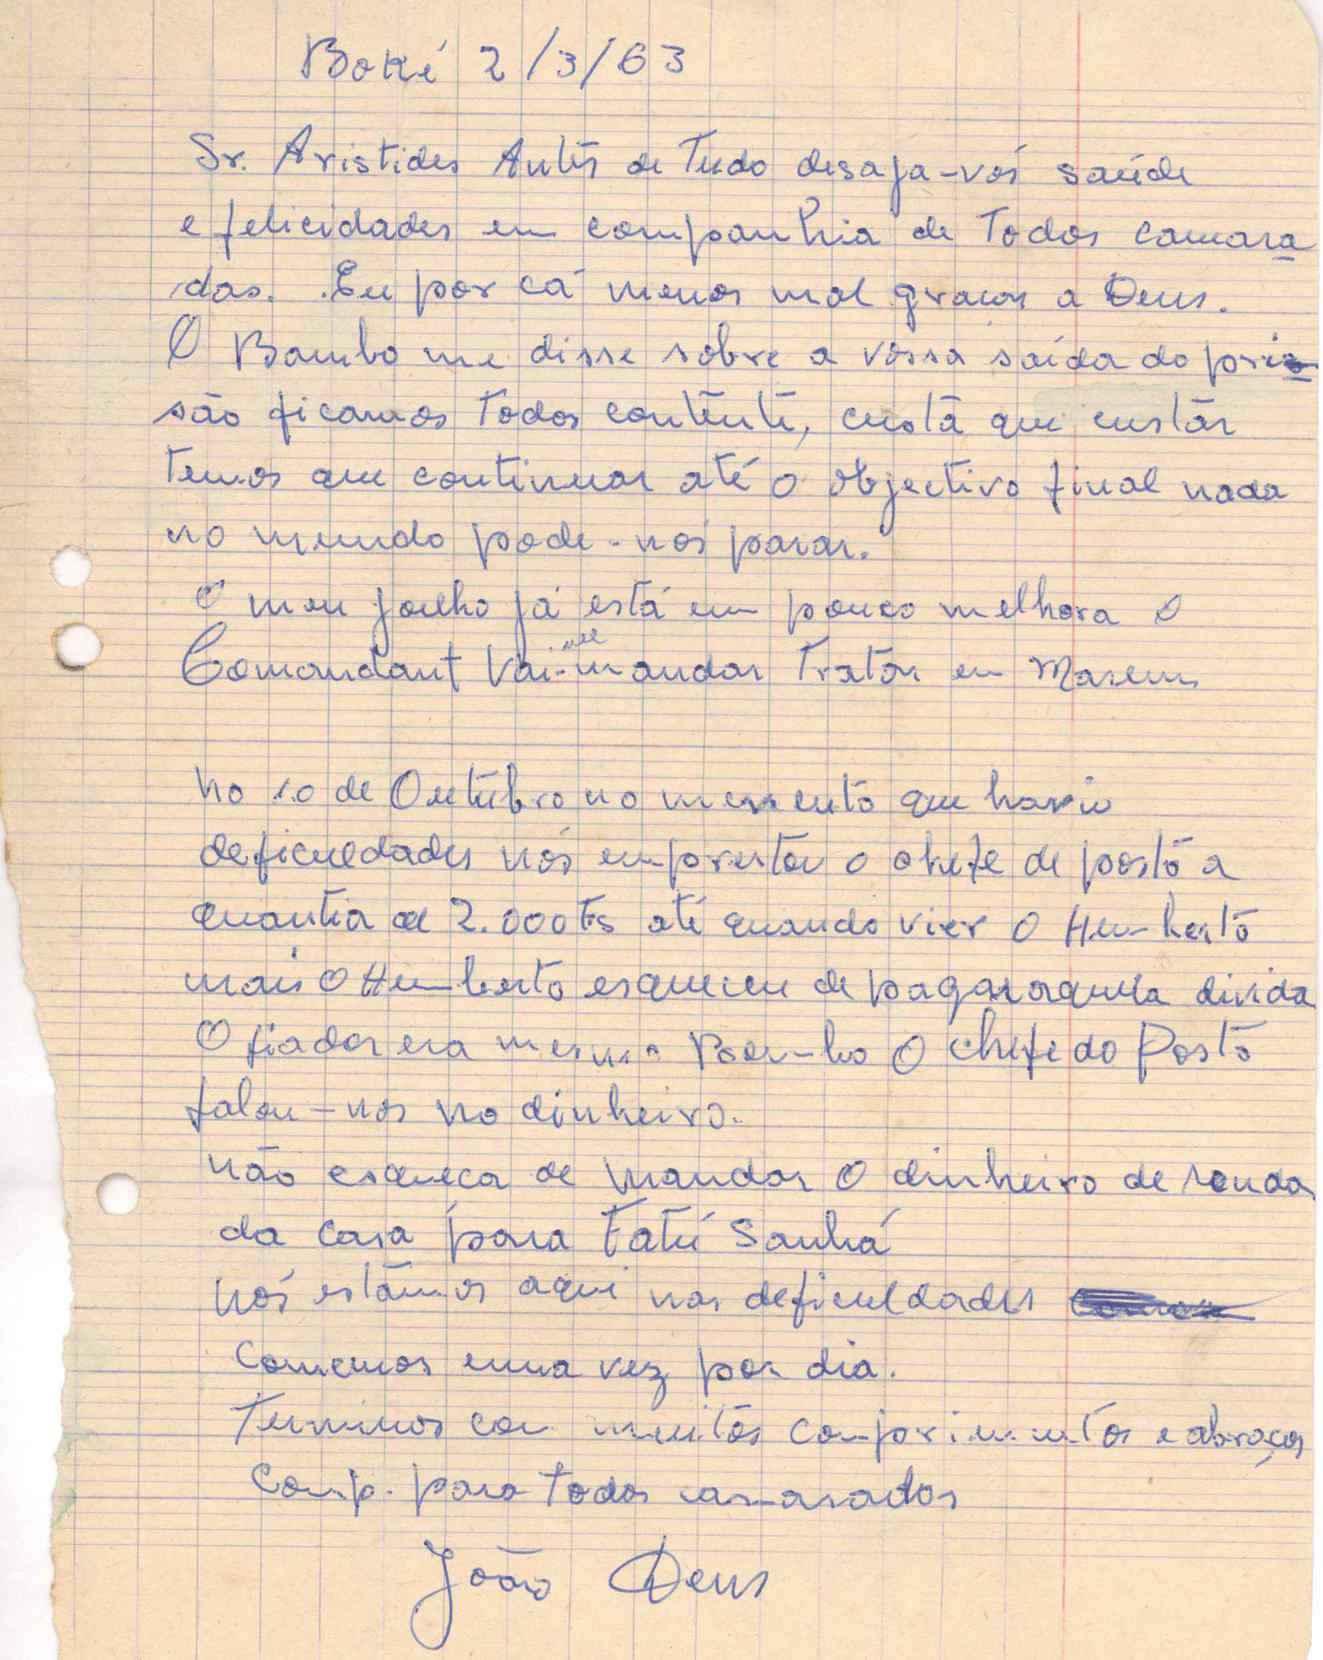 Boké 2/3/63
Sr. Aristides Antes de Tudo desaja-vos saúde
e felicidades em companhia de Todos camara
das. Eu por cá menos mal graças a Deus.
O Bambo me disse sobre a vossa saída do pri
são ficamos Todos contente, custa que custar
Temos que continuar até o objectivo final nada
no mundo pode-nos parar.
O meu joelho já está um pouco melhora o
Comandant Vai-me mandar Tratar em
no 10 de Outubro no momento que havia
deficuldades nós emprestou o chefe de posto a
quantia de 2.000 Fs até quando vier o Humberto
mais o Humberto esqueceu de pagar aquela divida
O fiador era mesmo o Chefe do Posto
falou-nos no dinheiro.
não esqueca de mandar o dinheiro de renda
da casa para Fatú Sanhá
nós estâmos aqui nas deficuldades
Comemos uma vez por dia.
Terminos com muitos comprimentos e abraços
Comp. para Todos camaradas
João Deus